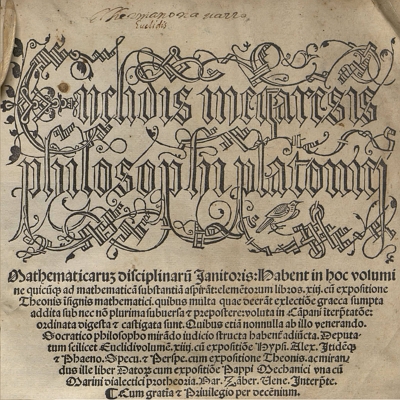 Euclidis
Euclidis megarensis
philosophi platonici
Mathematicaruʒ disciplinarũ Janitoris: Habent in hoc volumi
ne quicũqʒ ad mathematicã substantiã aspirãt: elemẽtorum libros. xiij. cũ expositione
Theonis ĩsignis mathematici. quibus multa quae deerãt ex lectiõe graeca sumpta
addita sub nec nõ plurima subuersa & prepostere: voluta in Cãpani ĩterp̃tatõe:
ordinata digesta & castigata sunt. Quibus etiã nonnulla ab illo venerando.
Socratico philosopho mirãdo iudicio structa habent̃ adiũcta. Deputa
tum scilicet Euclidi volumẽ. xiiij. cũ expositiõe Hypsi. Alex. Itidẽqʒ
& Phaeno. Specu. & Perspe. cum expositione Theonis. ac miran
dus ille liber Datoꝝ cum expositiõe Pappi Mechanici vna cũ
Marini dialectici protheoria. Bar. Zãber. Vene. Interp̃te.
Cum gratia & Priuilegio per decẽnium.